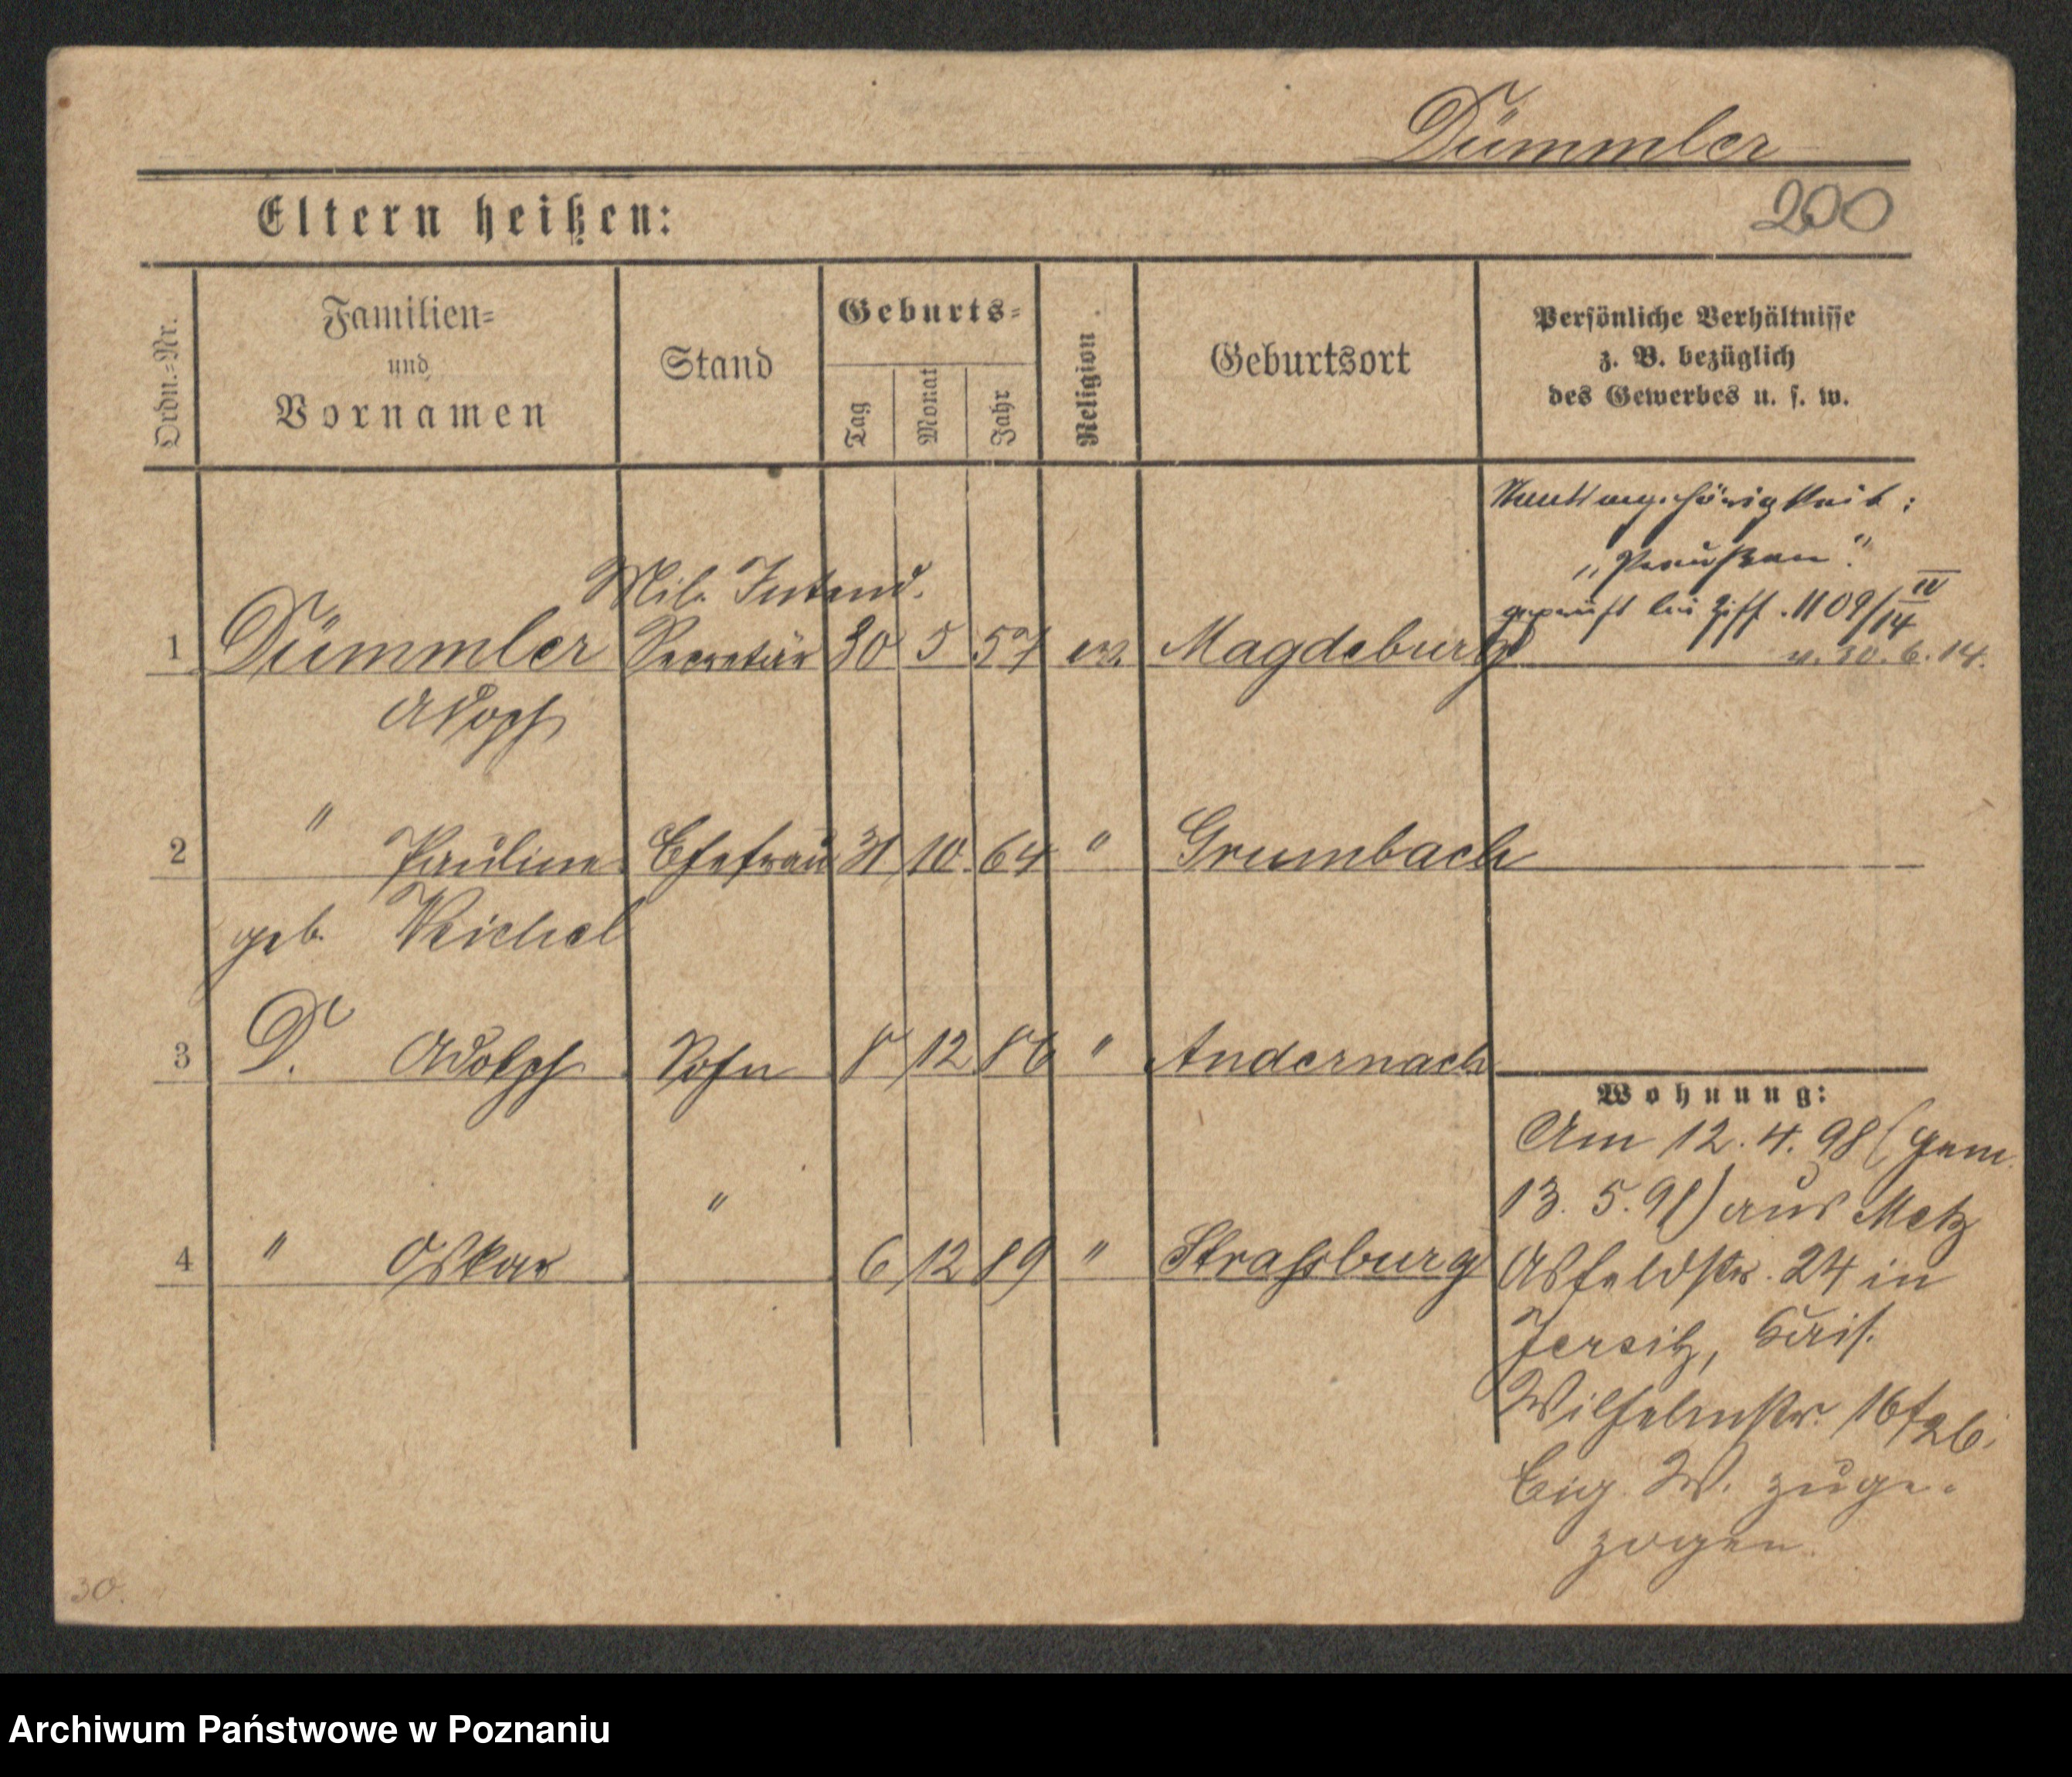 Dümmler
200
Eltern heißen:
Ordn.-Nr.
Familien-
und
Vornamen
Stand
Geburts-
Tag
Monat
Jahr
Religion
Geburtsort
Persönliche Verhältnisse
z. B. bezüglich
des Gewerbes u. s. w.
Staatsangehörigkeit:
„Preußen“.
geprüft bei Ziff. 1109/IV 14
v. 30. 6. 14.
Mil. Intend.
1 Dümmler Secretär 30 5 57 ev. Magdeburg
Adoph
2 " Pauline Ehefrau 31 10 64 " Grumbach
geb. Reichel
3 D. Adolph Sohn 8 12 86 " Andernach
4 " Oskar " 6 12 89 " Straßburg
Wohnung:
Am 12. 4. 98 (gem.
13. 5. 98) aus Metz
Asfeldstr. 24 in
Jersitz, Kais.
Wilhelmstr. 16
Eig. W. zuge-
zogen.
30.
Archiwum Państwowe w Poznaniu